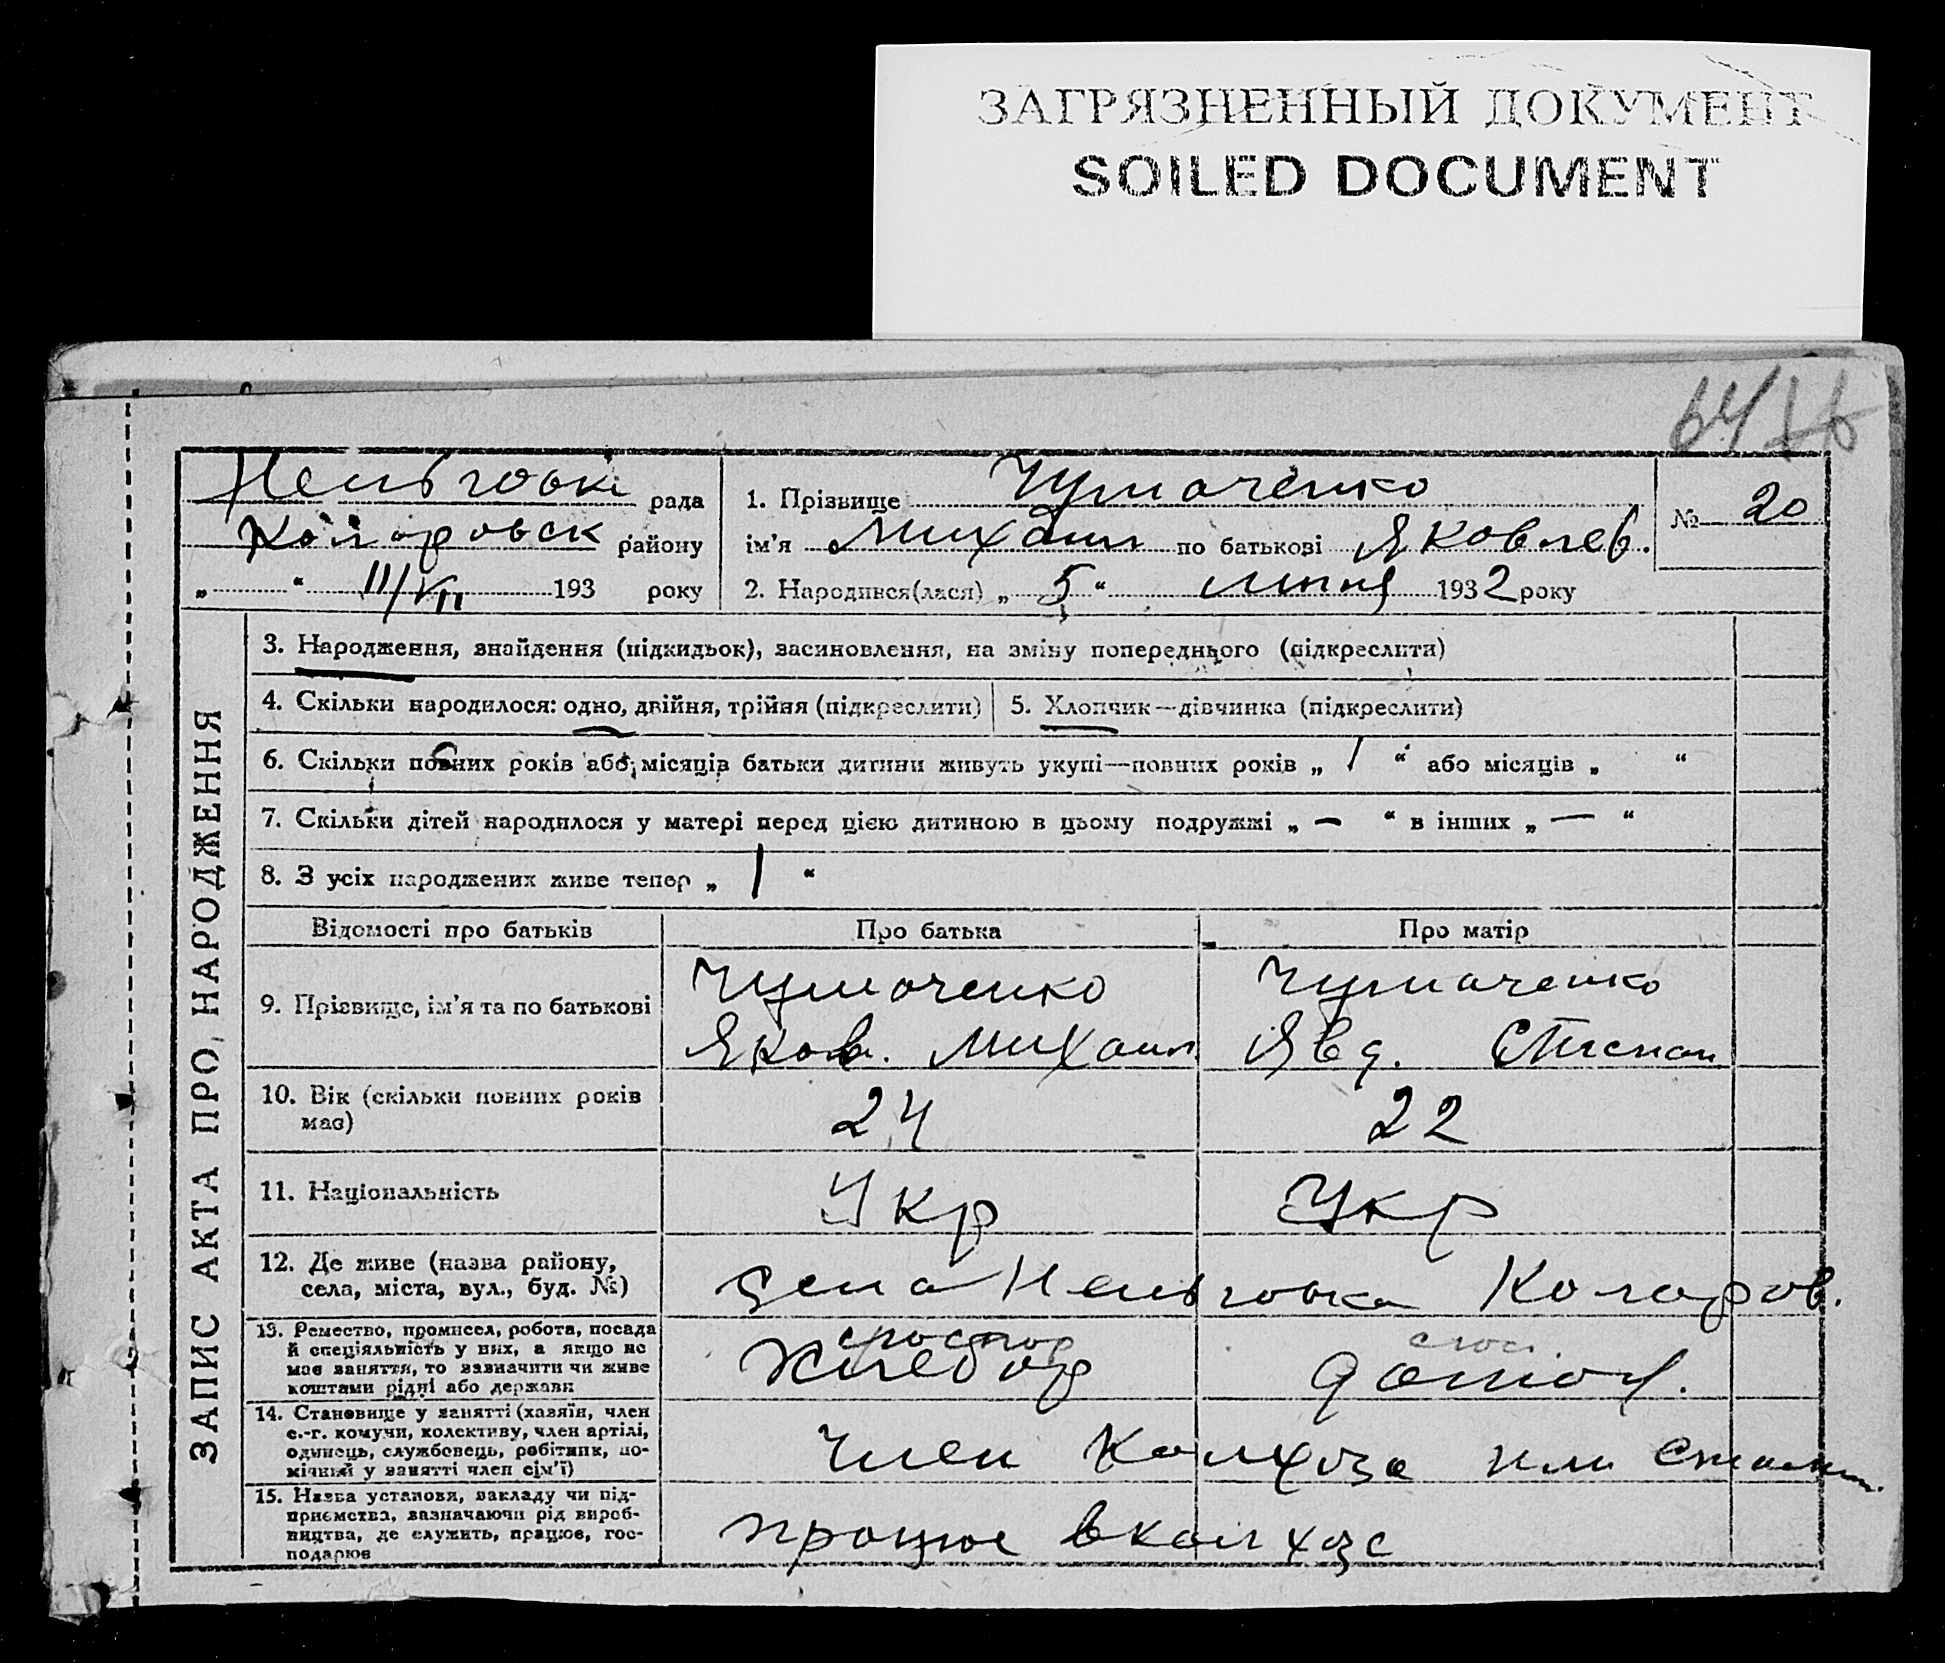 ЗАГРЯЗНЕННЫЙ ДОКУМЕНТ
SOILED DOCUMENT
64
рада
Коларовск району
„ “ III/VII 193 року
1. Прізвище Чумаченко
ім'я Михаил по батькові Яковлев.
2. Народився(лася) „ 5 “ липня 1932 року
№ 20
ЗАПИС АКТА ПРО НАРОДЖЕННЯ
3. Народження, знайдення (підкидьок), засиновлення, на зміну попереднього (підкреслити)
4. Скільки народилося: одно, двійня, трійня (підкреслити)
5. Хлопчик—дівчинка (підкреслити)
6. Скільки повних років або місяців батьки дитини живуть укупі—повних років „ 1 “ або місяців „ “
7. Скільки дітей народилося у матері перед цією дитиною в цьому подружжі „ — “ в інших „ — “
8. З усіх народжених живе тепер „ 1 “
Відомості про батьків Про батька Про матір
9. Прізвище, ім'я та по батькові
Чумаченко
Яков. Михаил
Чумаченко
Явд. Степан
10. Вік (скільки повних років
має)
24 22
11. Національність Укр Укр
12. Де живе (назва району,
села, міста, вул., буд. №)
Коларов.
13. Ремество, промисел, робота, посада
й спеціяльність у них, а якщо не
має заняття, то зазначити чи живе
коштами рідні або держави
Хлебор
домох.
14. Становище у занятті (хазяїн, член
с.-г. комуни, колективу, член артілі,
одинець, службовець, робітник, по-
мічний у занятті член сім'ї)
Член Колхоза
15. Назва установи, закладу чи під-
приємства, зазначаючи рід вироб-
ництва, де служить, працює, гос-
подарює
працює в колхозе